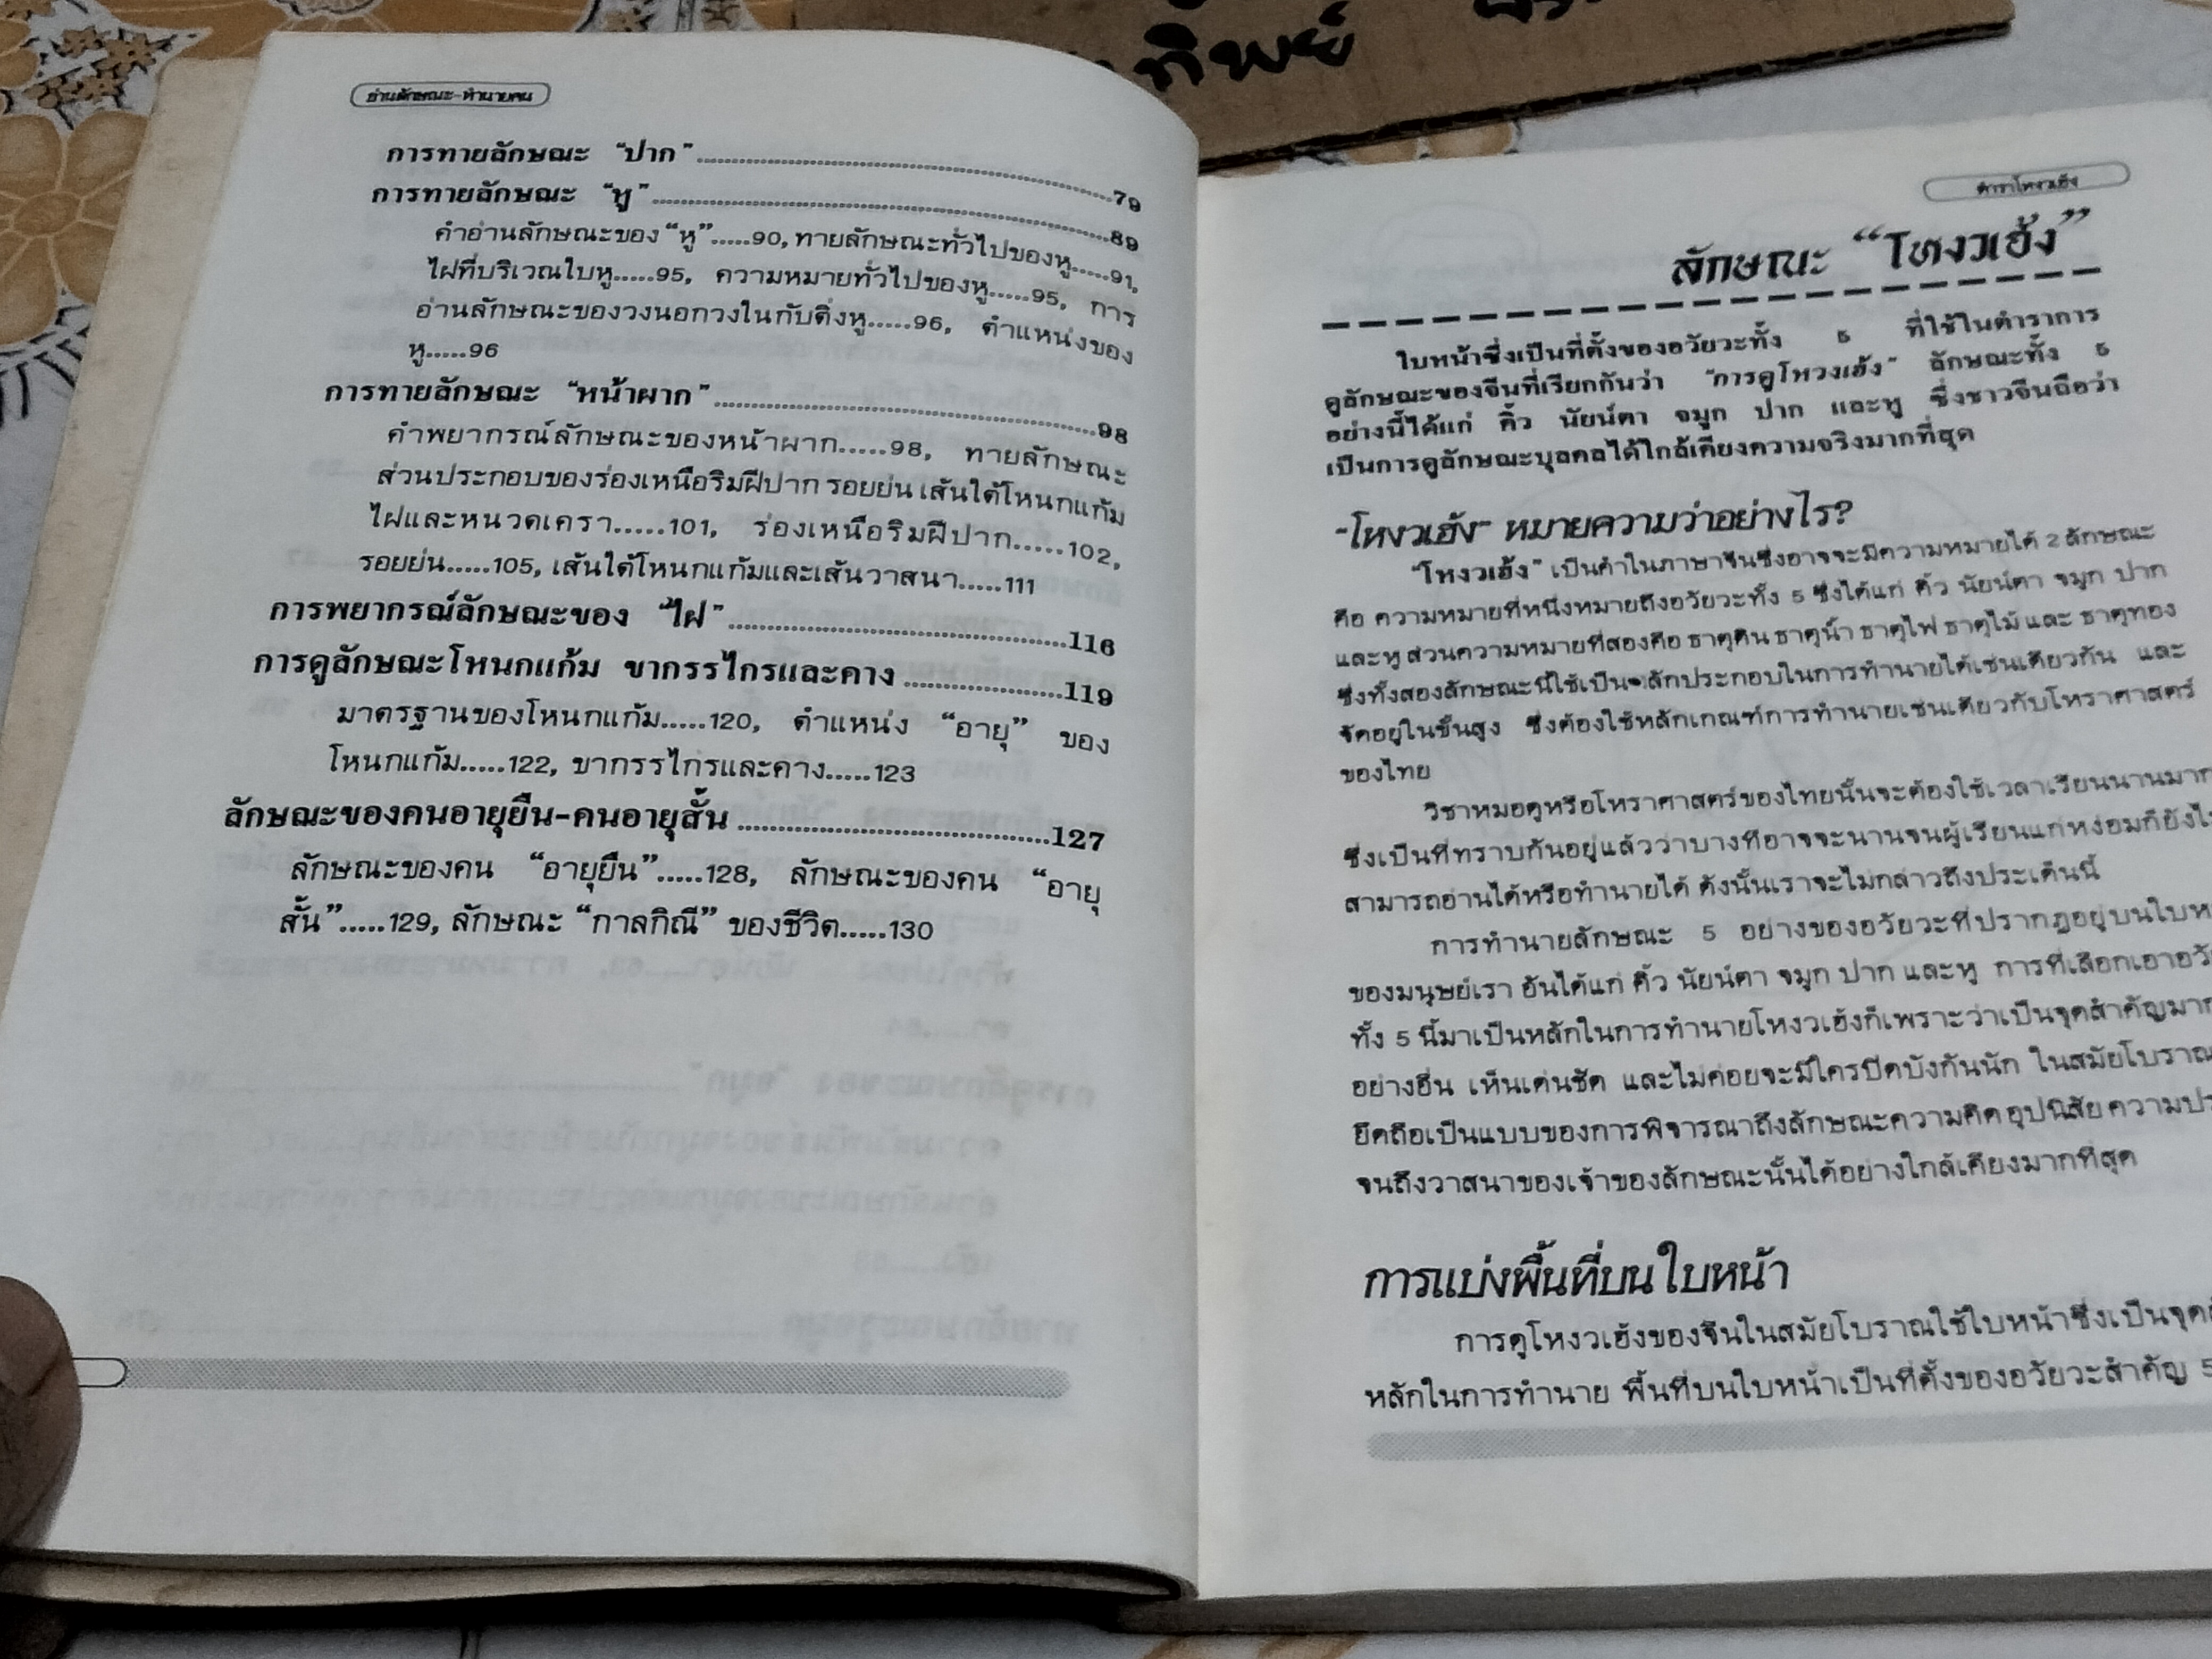 ทิพย์
อ่านลักษณะ-ทำนายคน
การทายลักษณะ "ปาก"........79
การทายลักษณะ "หู"........89
คำอ่านลักษณะของ "หู".....90, ทายลักษณะทั่วไปของหู.....91,
ไฝที่บริเวณใบหู.....95, ความหมายทั่วไปของหู.....95, การ
อ่านลักษณะของวงนอกวงในกับติ่งหู.....96, ตำแหน่งของ
หู.....96
การทายลักษณะ "หน้าผาก"........98
คำพยากรณ์ลักษณะของหน้าผาก.....98, ทายลักษณะ
ส่วนประกอบของร่องเหนือริมฝีปาก รอยย่น เส้นใต้โหนกแก้ม
ไฝและหนวดเครา.....101, ร่องเหนือริมฝีปาก.....102,
รอยย่น.....105, เส้นใต้โหนกแก้มและเส้นวาสนา.....111
การพยากรณ์ลักษณะของ "ไฝ"........116
การดูลักษณะโหนกแก้ม ขากรรไกรและคาง........119
มาตรฐานของโหนกแก้ม.....120, ตำแหน่ง "อายุ" ของ
โหนกแก้ม.....122, ขากรรไกรและคาง.....123
ลักษณะของคนอายุยืน-คนอายุสั้น........127
ลักษณะของคน "อายุยืน".....128, ลักษณะของคน "อายุ
สั้น".....129, ลักษณะ "กาลกิณี" ของชีวิต.....130
ตำราโหงวเฮ้ง
ลักษณะ "โหงวเฮ้ง"
ใบหน้าซึ่งเป็นที่ตั้งของอวัยวะทั้ง 5 ที่ใช้ในตำราการ
ดูลักษณะของจีนที่เรียกกันว่า "การดูโหวงเฮ้ง" ลักษณะทั้ง 5
อย่างนี้ได้แก่ คิ้ว นัยน์ตา จมูก ปาก และหู ซึ่งชาวจีนถือว่า
เป็นการดูลักษณะบุคคลได้ใกล้เคียงความจริงมากที่สุด
"โหงวเฮ้ง" หมายความว่าอย่างไร?
"โหงวเฮ้ง" เป็นคำในภาษาจีนซึ่งอาจจะมีความหมายได้ 2 ลักษณะ
คือ ความหมายที่หนึ่งหมายถึงอวัยวะทั้ง 5 ซึ่งได้แก่ คิ้ว นัยน์ตา จมูก ปาก
และหู ส่วนความหมายที่สองคือ ธาตุดิน ธาตุน้ำ ธาตุไฟ ธาตุไม้ และ ธาตุทอง
ซึ่งทั้งสองลักษณะนี้ใช้เป็นหลักประกอบในการทำนายได้เช่นเดียวกัน และ
จัดอยู่ในขั้นสูง ซึ่งต้องใช้หลักเกณฑ์การทำนายเช่นเดียวกับโหราศาสตร์
ของไทย
วิชาหมอดูหรือโหราศาสตร์ของไทยนั้นจะต้องใช้เวลาเรียนนานมาก
ซึ่งเป็นที่ทราบกันอยู่แล้วว่าบางทีอาจจะนานจนผู้เรียนแก่หง่อมก็ยังไ
สามารถอ่านได้หรือทำนายได้ ดังนั้นเราจะไม่กล่าวถึงประเด็นนี้
การทำนายลักษณะ 5 อย่างของอวัยวะที่ปรากฏอยู่บนใบห
ของมนุษย์เรา อันได้แก่ คิ้ว นัยน์ตา จมูก ปาก และหู การที่เลือกเอาอวั
ทั้ง 5 นี้มาเป็นหลักในการทำนายโหงวเฮ้งก็เพราะว่าเป็นจุดสำคัญมาก
อย่างอื่น เห็นเด่นชัด และไม่ค่อยจะมีใครปิดบังกันนัก ในสมัยโบราณ
ยึดถือเป็นแบบของการพิจารณาถึงลักษณะความคิด อุปนิสัย ความปร
จนถึงวาสนาของเจ้าของลักษณะนั้นได้อย่างใกล้เคียงมากที่สุด
การแบ่งพื้นที่บนใบหน้า
การดูโหงวเฮ้งของจีนในสมัยโบราณใช้ใบหน้าซึ่งเป็นจุด
หลักในการทำนาย พื้นที่บนใบหน้าเป็นที่ตั้งของอวัยวะสำคัญ 5